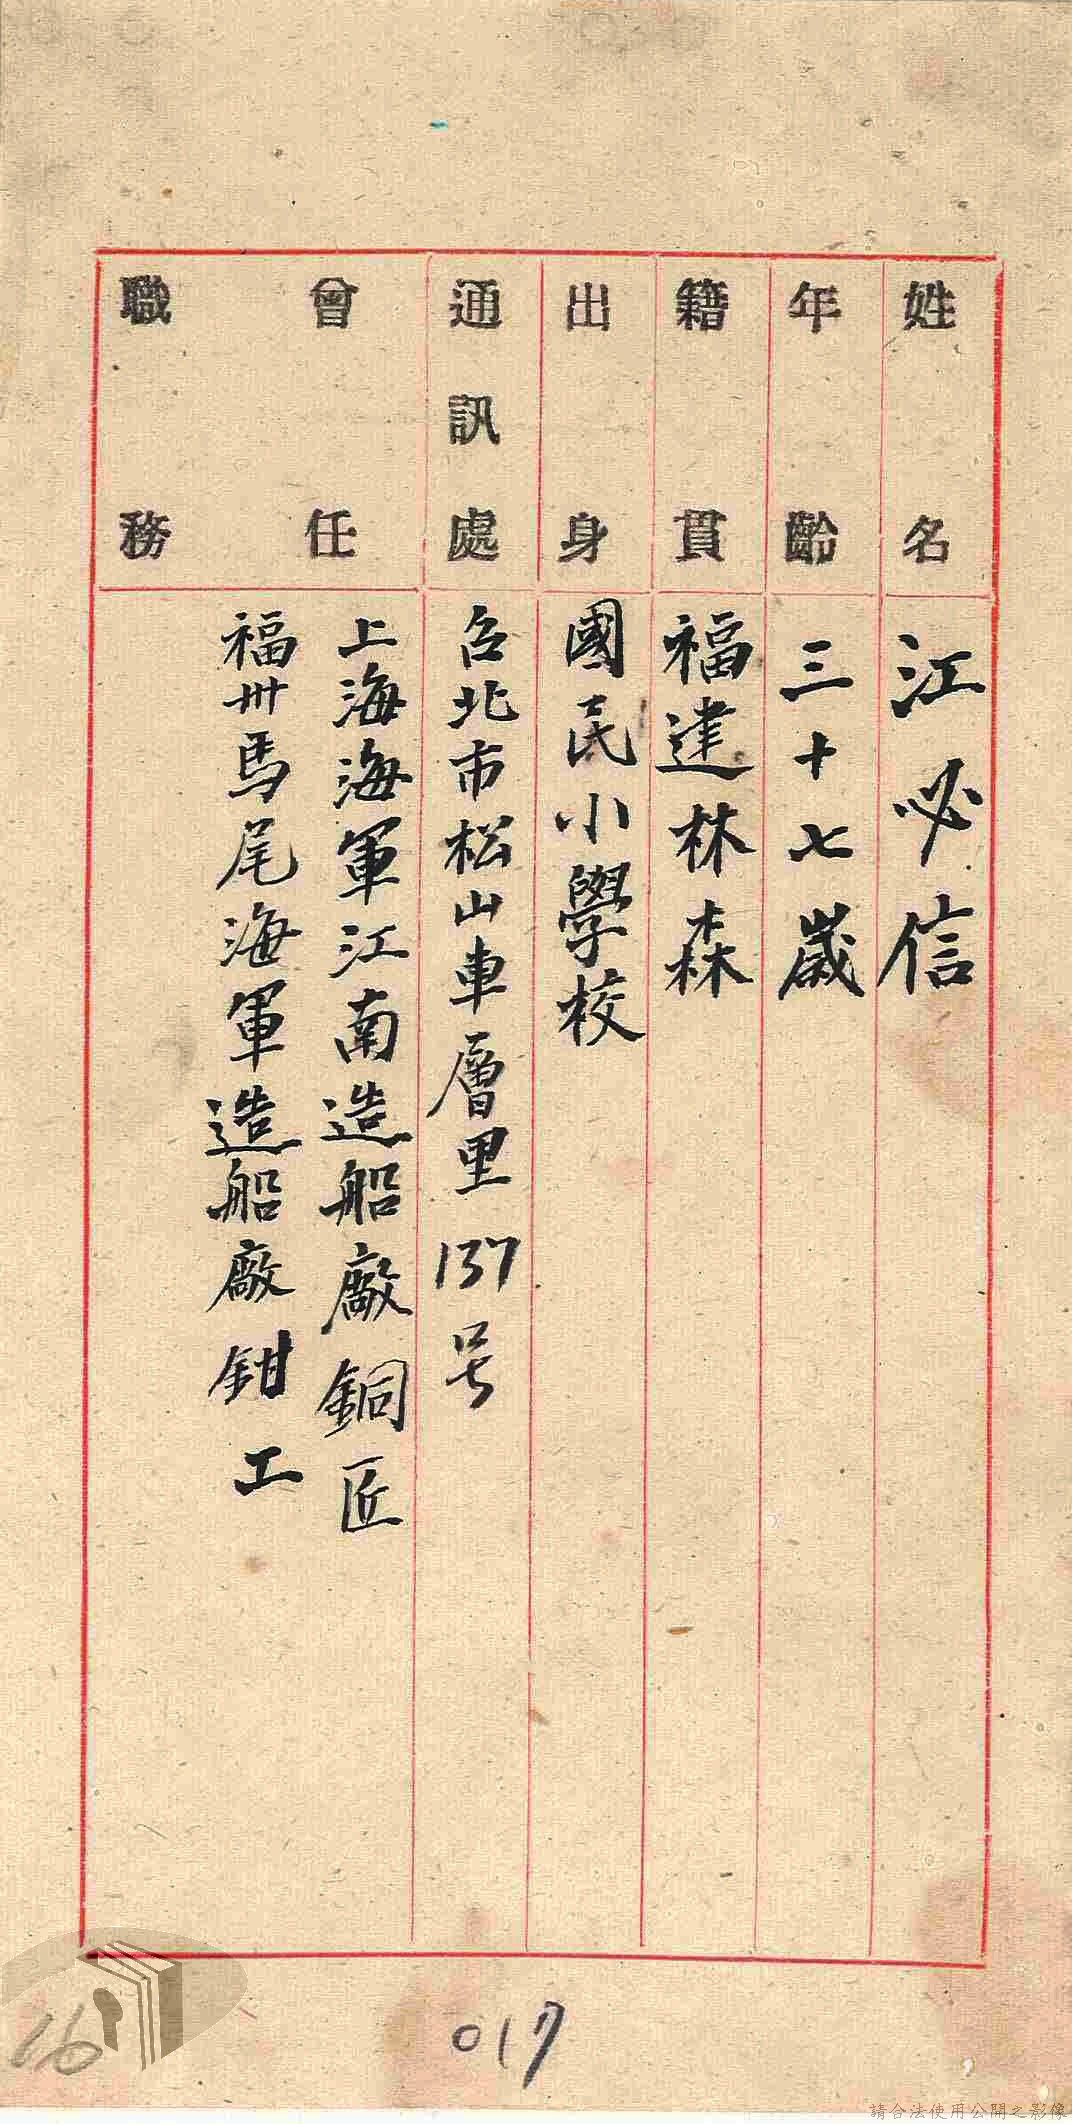 姓名
江必信
年齡
三十七歲
籍貫
福建林森
出身
國民小學校
通訊處
台北市松山車層里137号
曾任
職務
上海海軍江南造船廠銅匠
福州馬尾海軍造船廠鉗工
017
16
請合法使用公開之影像